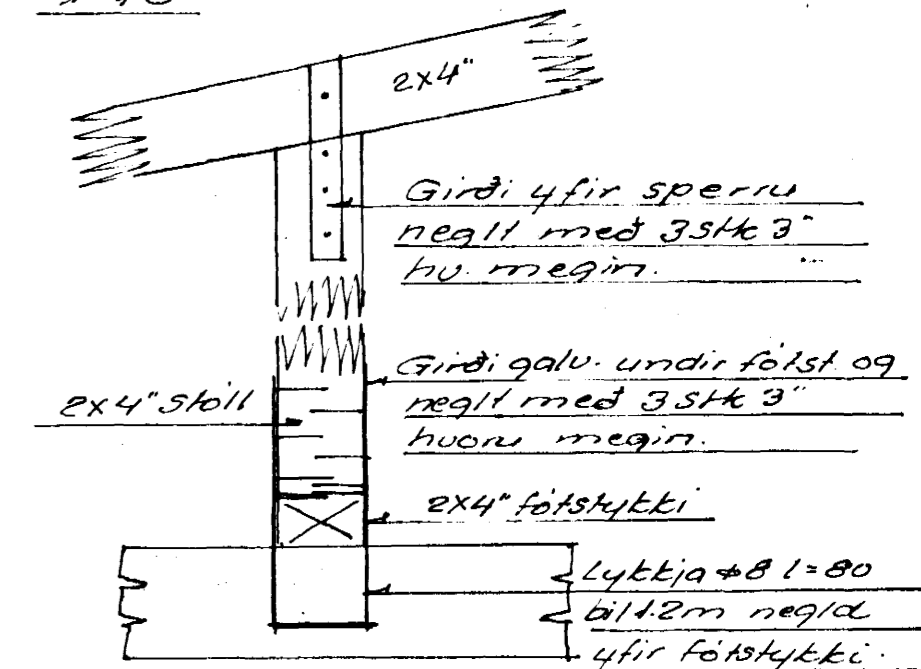 2x4"
Girði yfir sperru
neglt með 3 stk 3"
hv. megin.
Girði galv. undir fótst og
neglt með 3 stk 3"
hvoru megin.
2x4" stóll
2x4" fótstykki
Lykkja ø8 l=80
bil 1.2m negld
yfir fótstykki.